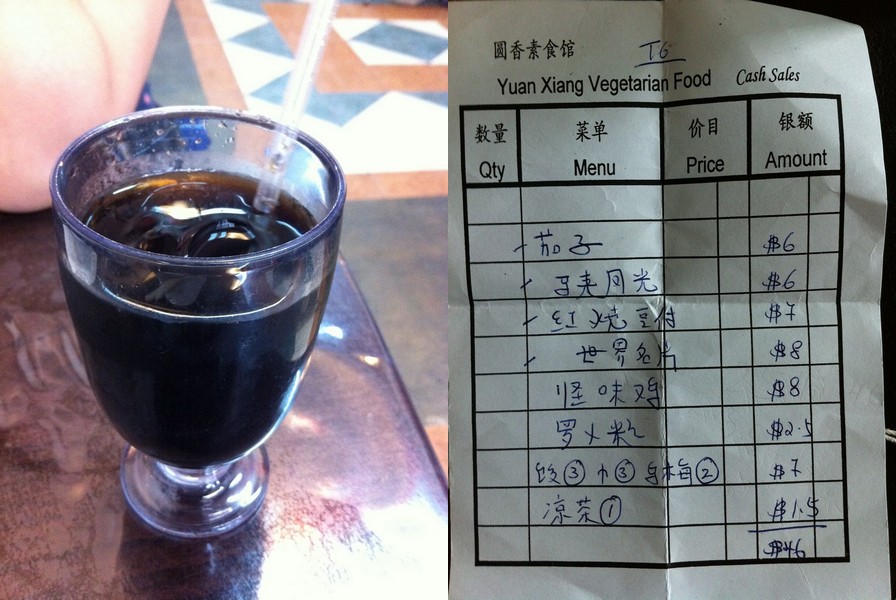 圆香素食馆 T6
Yuan Xiang Vegetarian Food Cash Sales
数量 菜单 价目 银额
Qty Menu Price Amount
茄子 $6
马来风光 $6
红烧豆付 $7
世界名片 $8
怪味鸡 $8
罗义粉 $2.5
饭③ 巾③ 乌梅② $7
凉茶① $1.5
$46